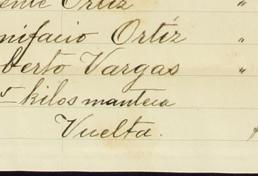 ente Ortiz "
nifacio Ortíz "
berto Vargas "
kilos manteca
Vuelta.